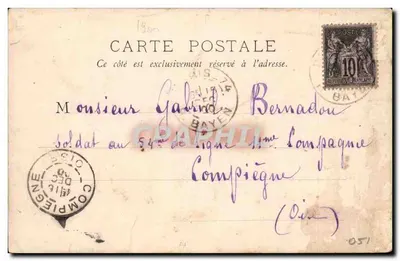 1900
CARTE POSTALE
Ce côté est exclusivement réservé à l'adresse.
PARIS 74
BAYEN
10
BAYEN
Monsieur Gabriel Bernadou
soldat au 54me de ligne 11me Compagnie
Compiègne
(Oise)
COMPIEGNE OISE
DEC
051